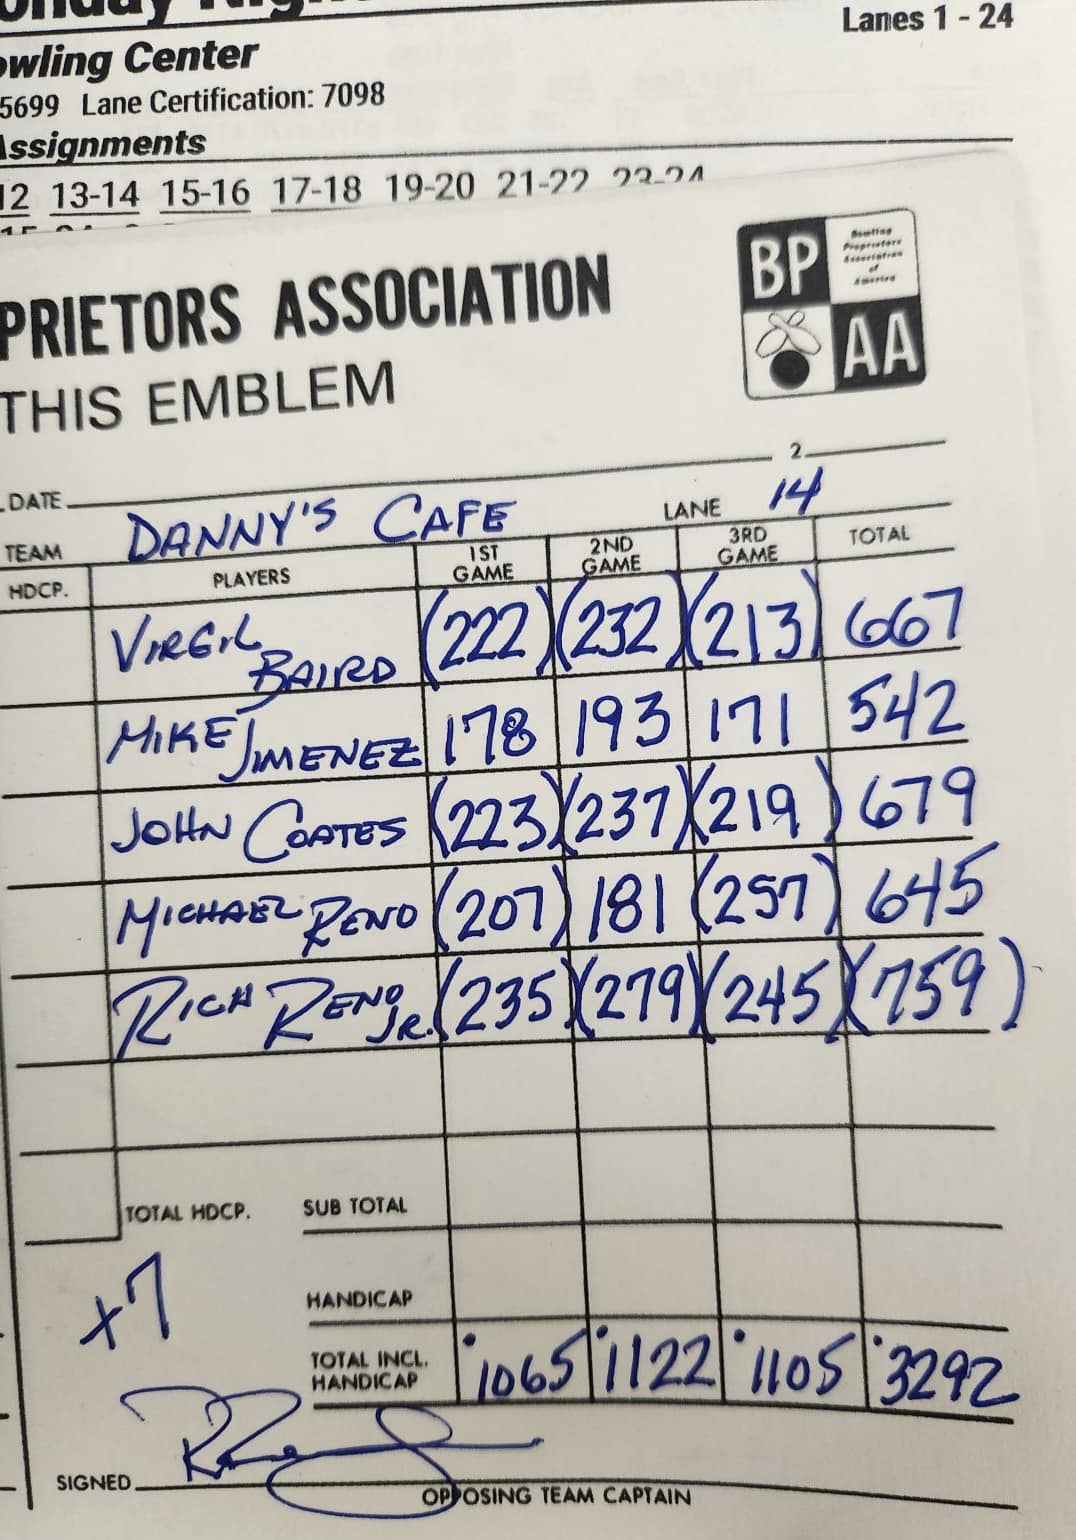 Lanes 1 - 24
owling Center
5699 Lane Certification: 7098
Assignments
12 13-14 15-16 17-18 19-20 21-22 23-24
BP
Bowling
Proprietors
Association
of
America
AA
PRIETORS ASSOCIATION
THIS EMBLEM
DATE 2
TEAM DANNY'S CAFE LANE 14
HDCP. PLAYERS 1ST GAME 2ND GAME 3RD GAME TOTAL
VIRGIL BAIRD (222) (232) (213) 667
MIKE JIMENEZ 178 193 171 542
JOHN COATES (223) (237) (219) 679
MICHAEL RENO (207) 181 (257) 645
RICH RENO JR. (235) (279) (245) (759)
TOTAL HDCP. SUB TOTAL
x7 HANDICAP
TOTAL INCL. HANDICAP 1065 1122 1105 3292
SIGNED
OPPOSING TEAM CAPTAIN